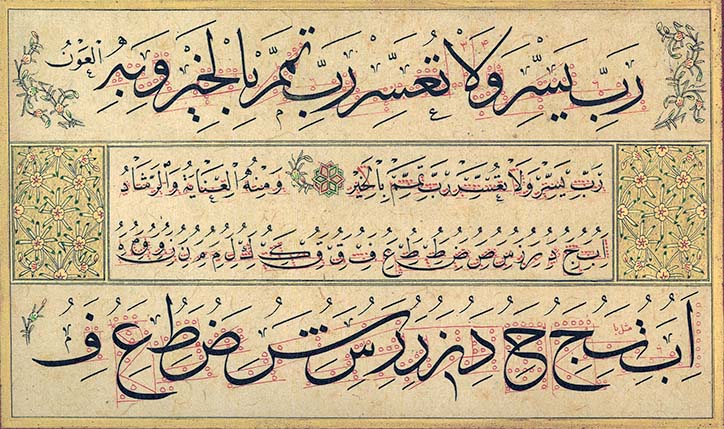 رَبِّ يَسِّرْ وَلَا تُعَسِّرْ رَبِّ تَمِّمْ بِالْخَيْرِ وَبِهِ الْعَوْنُ
رَبِّ يَسِّرْ وَلَا تُعَسِّرْ رَبِّ تَمِّمْ بِالْخَيْرِ وَمِنْهُ الْعِنَايَةُ وَالرَّشَادُ
ا ب ج د ر ز س ص ض ط ظ ع ف ق ك ل م م ن و ه
ا ب ت ج ح د ر ز س ش ض ط ع ف